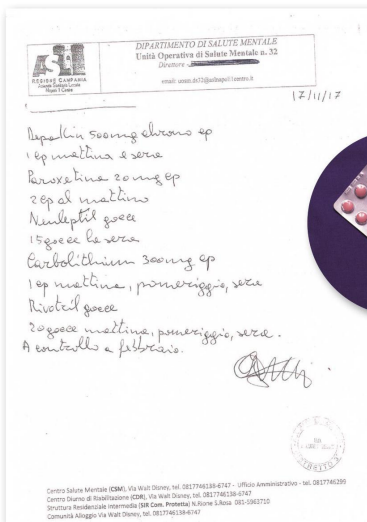 ASL
REGIONE CAMPANIA
Azienda Sanitaria Locale
Napoli 1 Centro
DIPARTIMENTO DI SALUTE MENTALE
Unità Operativa di Salute Mentale n. 32
Direttore
17/11/17
Depakin 500mg chrono cp
1 cp mattina e sera
Paroxetina 20mg cp
2 cp al mattino
Neuleptil gocce
15 gocce la sera
Carbolithium 300mg cp
1 cp mattina, pomeriggio, sera
Rivotril gocce
20 gocce mattina, pomeriggio, sera.
A controllo a febbraio.
Centro Salute Mentale (CSM), Via Walt Disney, tel. 0817746138-6747 - Ufficio Amministrativo - tel. 0817746299
Centro Diurno di Riabilitazione (CDR), Via Walt Disney, tel. 0817746138-6747
Struttura Residenziale Intermedia (SIR Com. Protetta) N.Rione S.Rosa 081-5963710
Comunità Alloggio Via Walt Disney, tel. 0817746138-6747